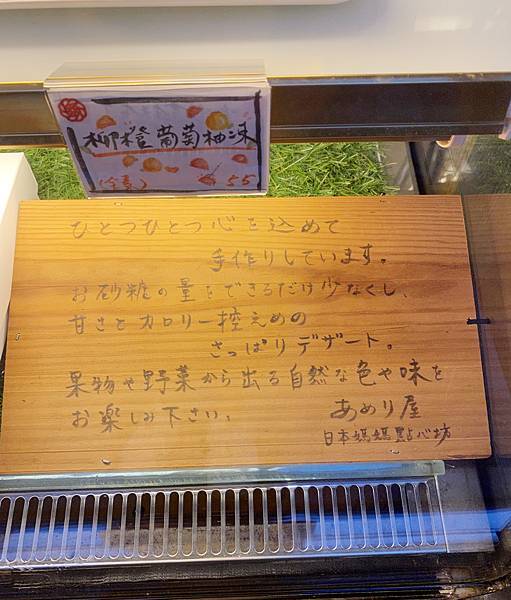 柳橙葡萄柚凍
(全素)
55
ひとつひとつ心を込めて
手作りしています。
お砂糖の量をできるだけ少なくし、
甘さとカロリー控えめの
さっぱりデザート。
果物や野菜から出る自然な色や味を
お楽しみ下さい。
あめり屋
日本媽媽點心坊